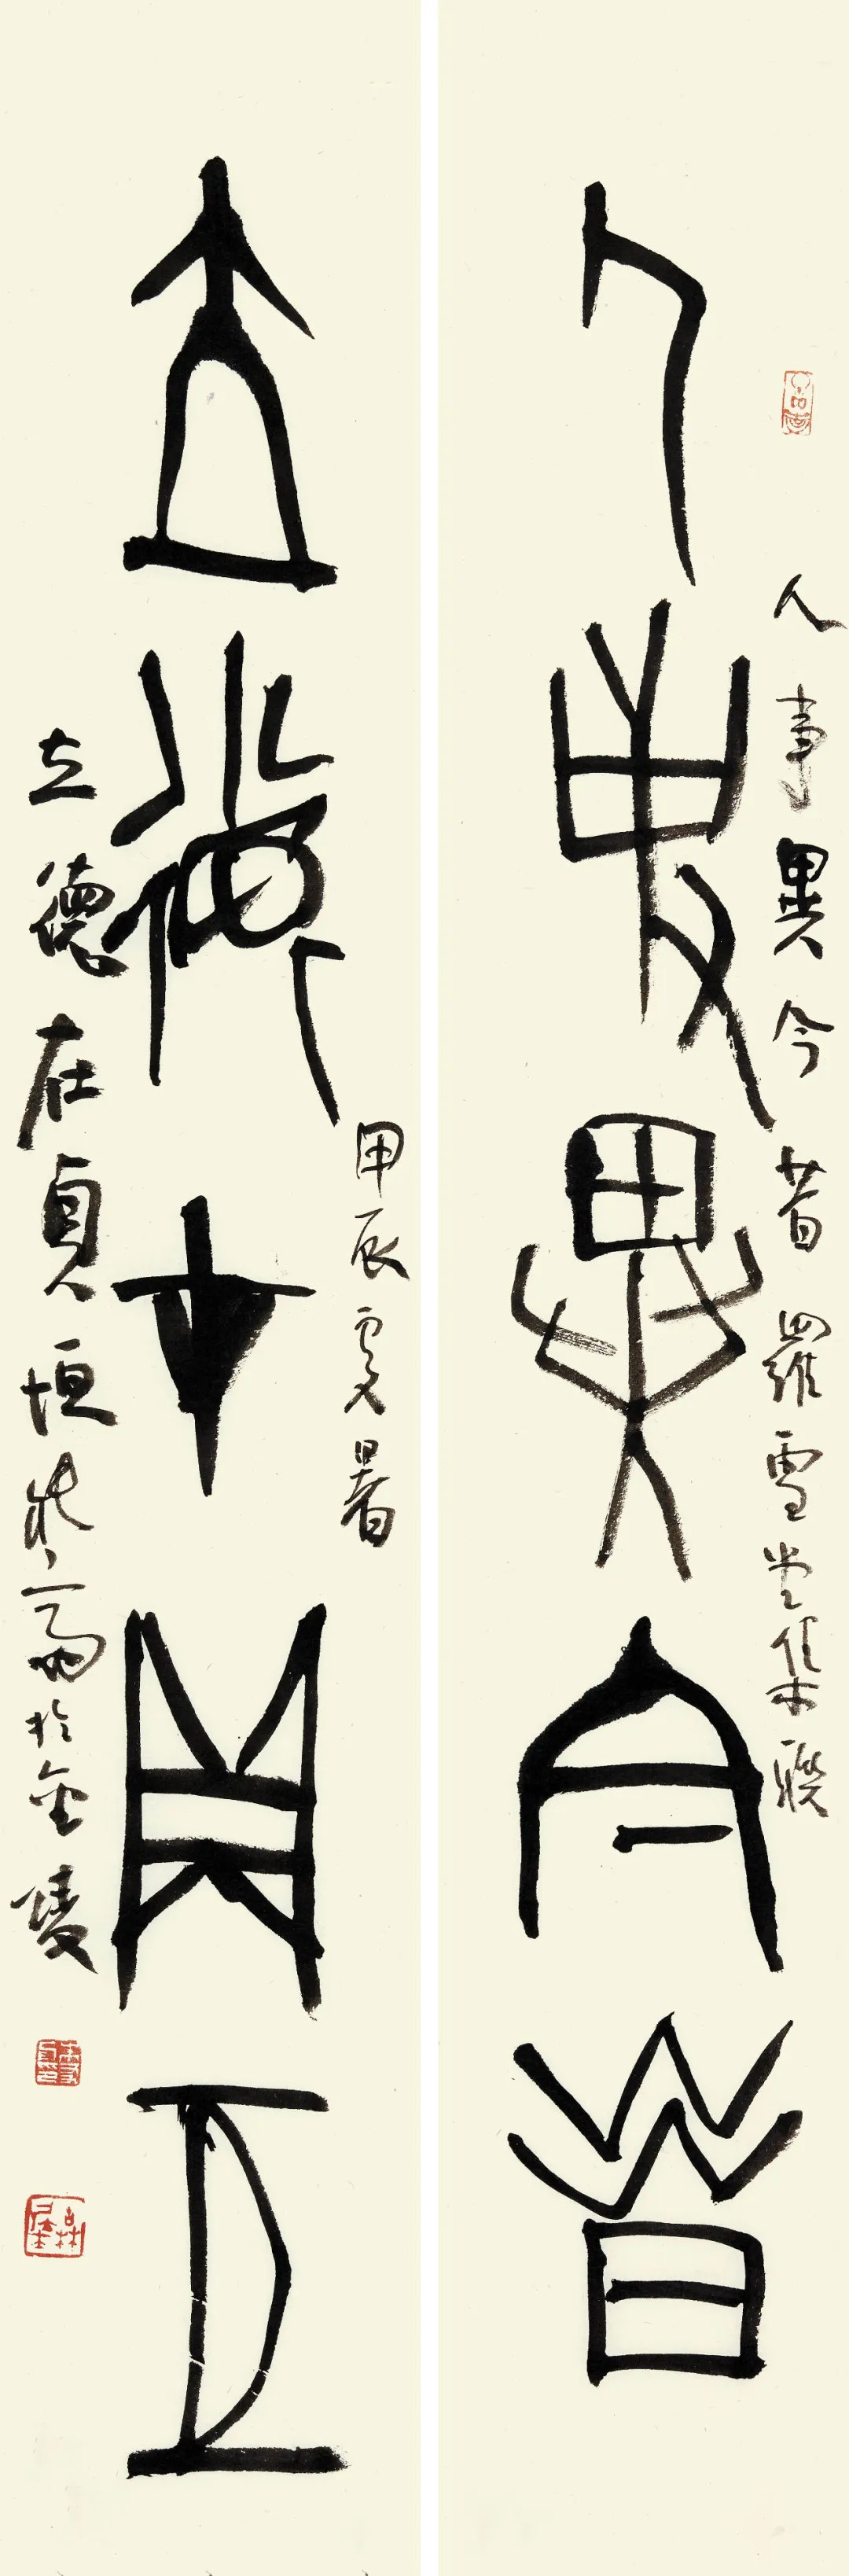 人事異今昔
人事異今昔 羅雪堂集聯
立德在貞恒
甲辰處暑
立德在貞恒 於金陵